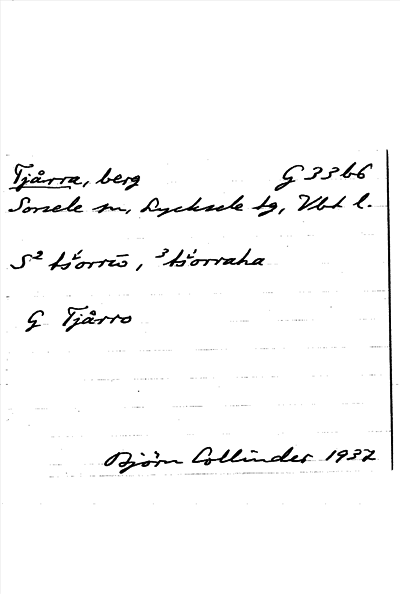 Tjårra, berg G 33 b6
Sorsele sn, Lycksele tg, Vbt l.
S² tśorrō, ³tśorraha
G Tjårro
Björn Collinder 1937